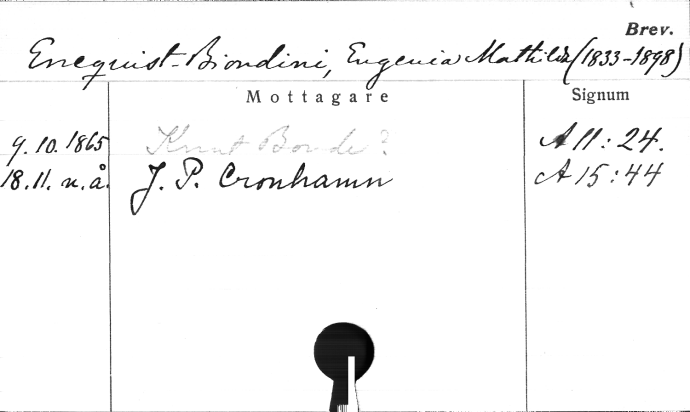 Brev.
Enequist-Biondini, Eugenia Mathilda (1833-1898)
Mottagare Signum
9.10.1865 Knut Bonde? A 11:24.
18.11. u.å. J. P. Cronhamn A 15:44